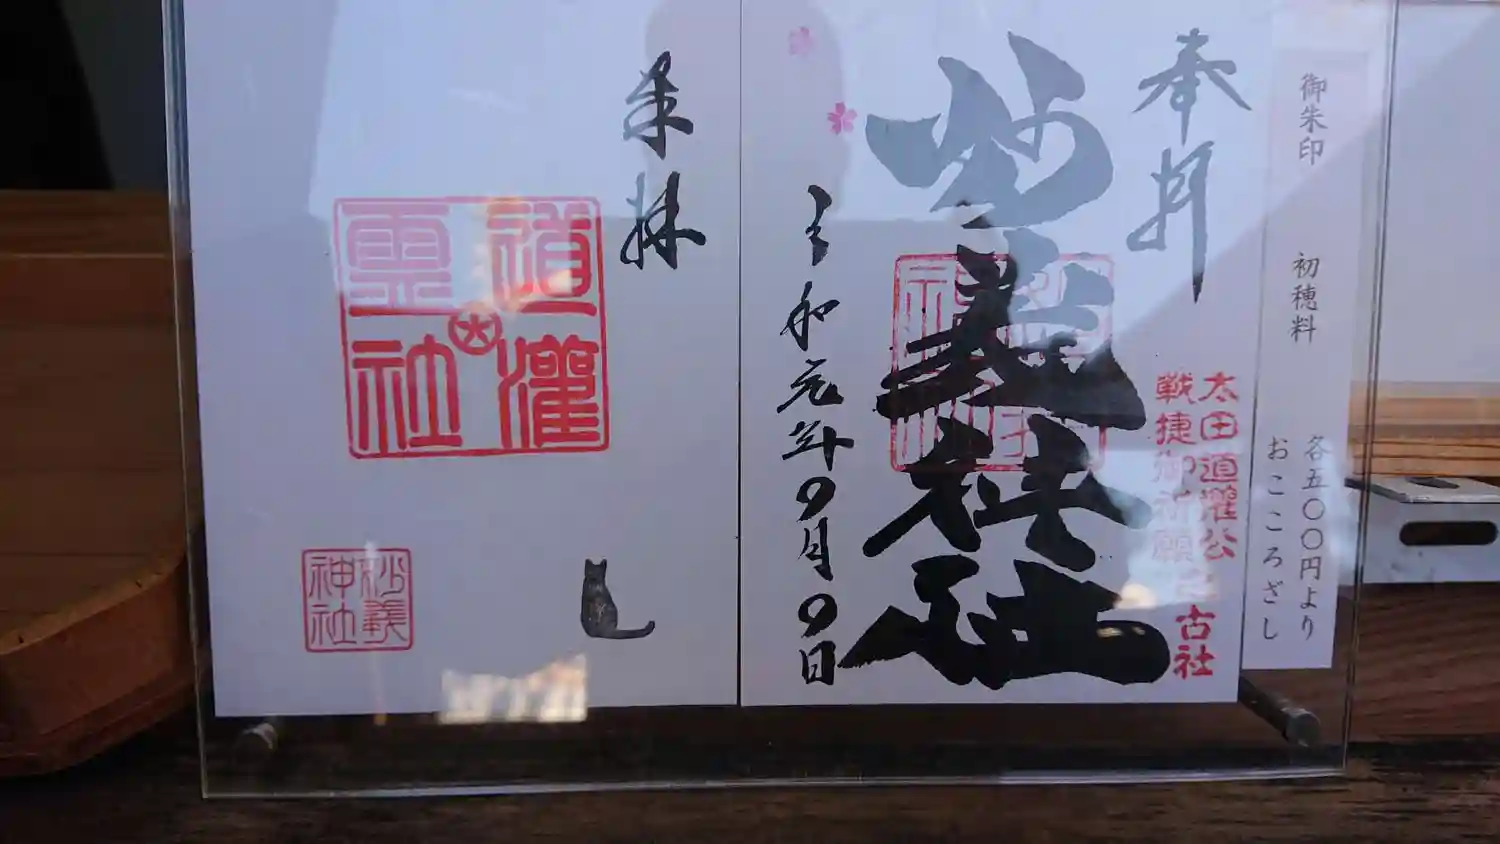 御朱印 初穂料 各五〇〇円より
おこころざし
奉拝
太田道灌公
戦捷御祈願之古社
妙義神社
令和元年九月九日
奉拝
道灌霊社
妙義神社